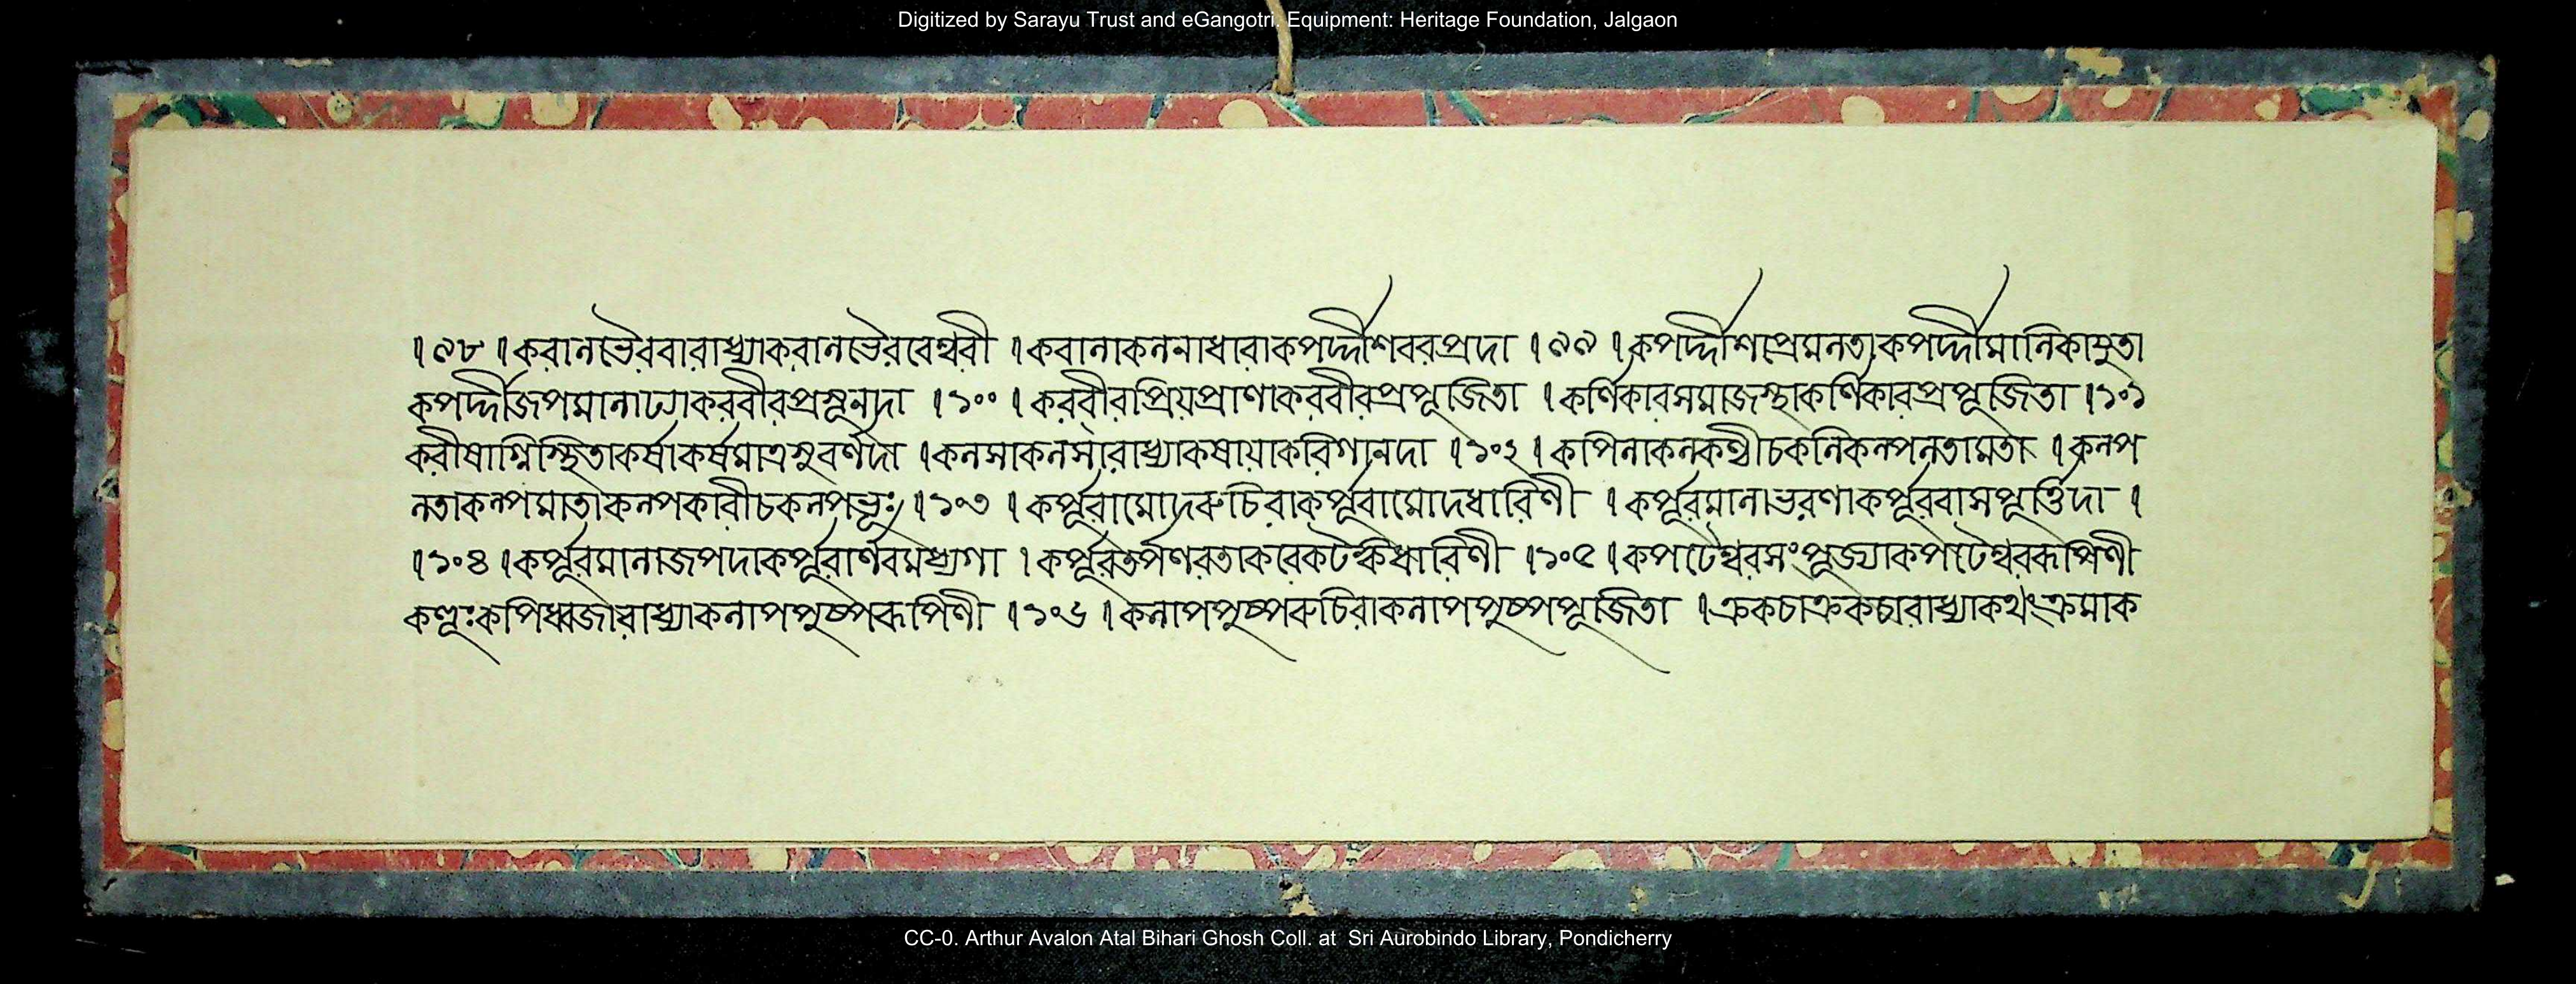 Digitized by Sarayu Trust and eGangotri. Equipment: Heritage Foundation, Jalgaon
।৯৮।করালভৈরবারাধ্যাকরালভৈরবেশ্বরী ।করালাকলনাধারাকপর্দ্দীশবরপ্রদা ।৯৯।কপর্দ্দীশাপ্রেমলতাকপর্দ্দীমালিকাযুতা
কপর্দ্দীজপমালাঢ্যাকরবীরপ্রসূনদা ।১০০।করবীরপ্রিয়প্রাণাকরবীরপ্রপূজিতা ।কর্ণিকারসমাজস্থাকর্ণিকারপ্রপূজিতা।১০১
করীষাগ্নিস্থিতাকর্ষাকর্ষমাত্রসুবর্ণদা ।কলসাকলসারাধ্যাকষায়াকরিগানদা ।১০২।কপিলাকলকণ্ঠীচকলিকল্পলতামতা ।কল্প
লতাকল্পমাতাকল্পকারীচকল্পভূঃ।১০৩ ।কর্পূরামোদরুচিরাকর্পূরামোদধারিণী ।কর্পূরমালাভরণাকর্পূরবাসপূর্ত্তিদা ।
।১০৪।কর্পূরমালাজপদাকর্পূরার্ণবমধ্যগা ।কর্পূরতর্পণরতাকরেকটঙ্কিধারিণী ।১০৫।কপটেশ্বরসংপূজ্যাকপটেশ্বররূপিণী
কণ্ডূঃকপিধ্বজারাধ্যাকলাপপুষ্পরূপিণী ।১০৬।কলাপপুষ্পরুচিরাকলাপপুষ্পপূজিতা ।ক্রকচাক্রকচারাধ্যাকথংক্রমাক
CC-0. Arthur Avalon Atal Bihari Ghosh Coll. at Sri Aurobindo Library, Pondicherry